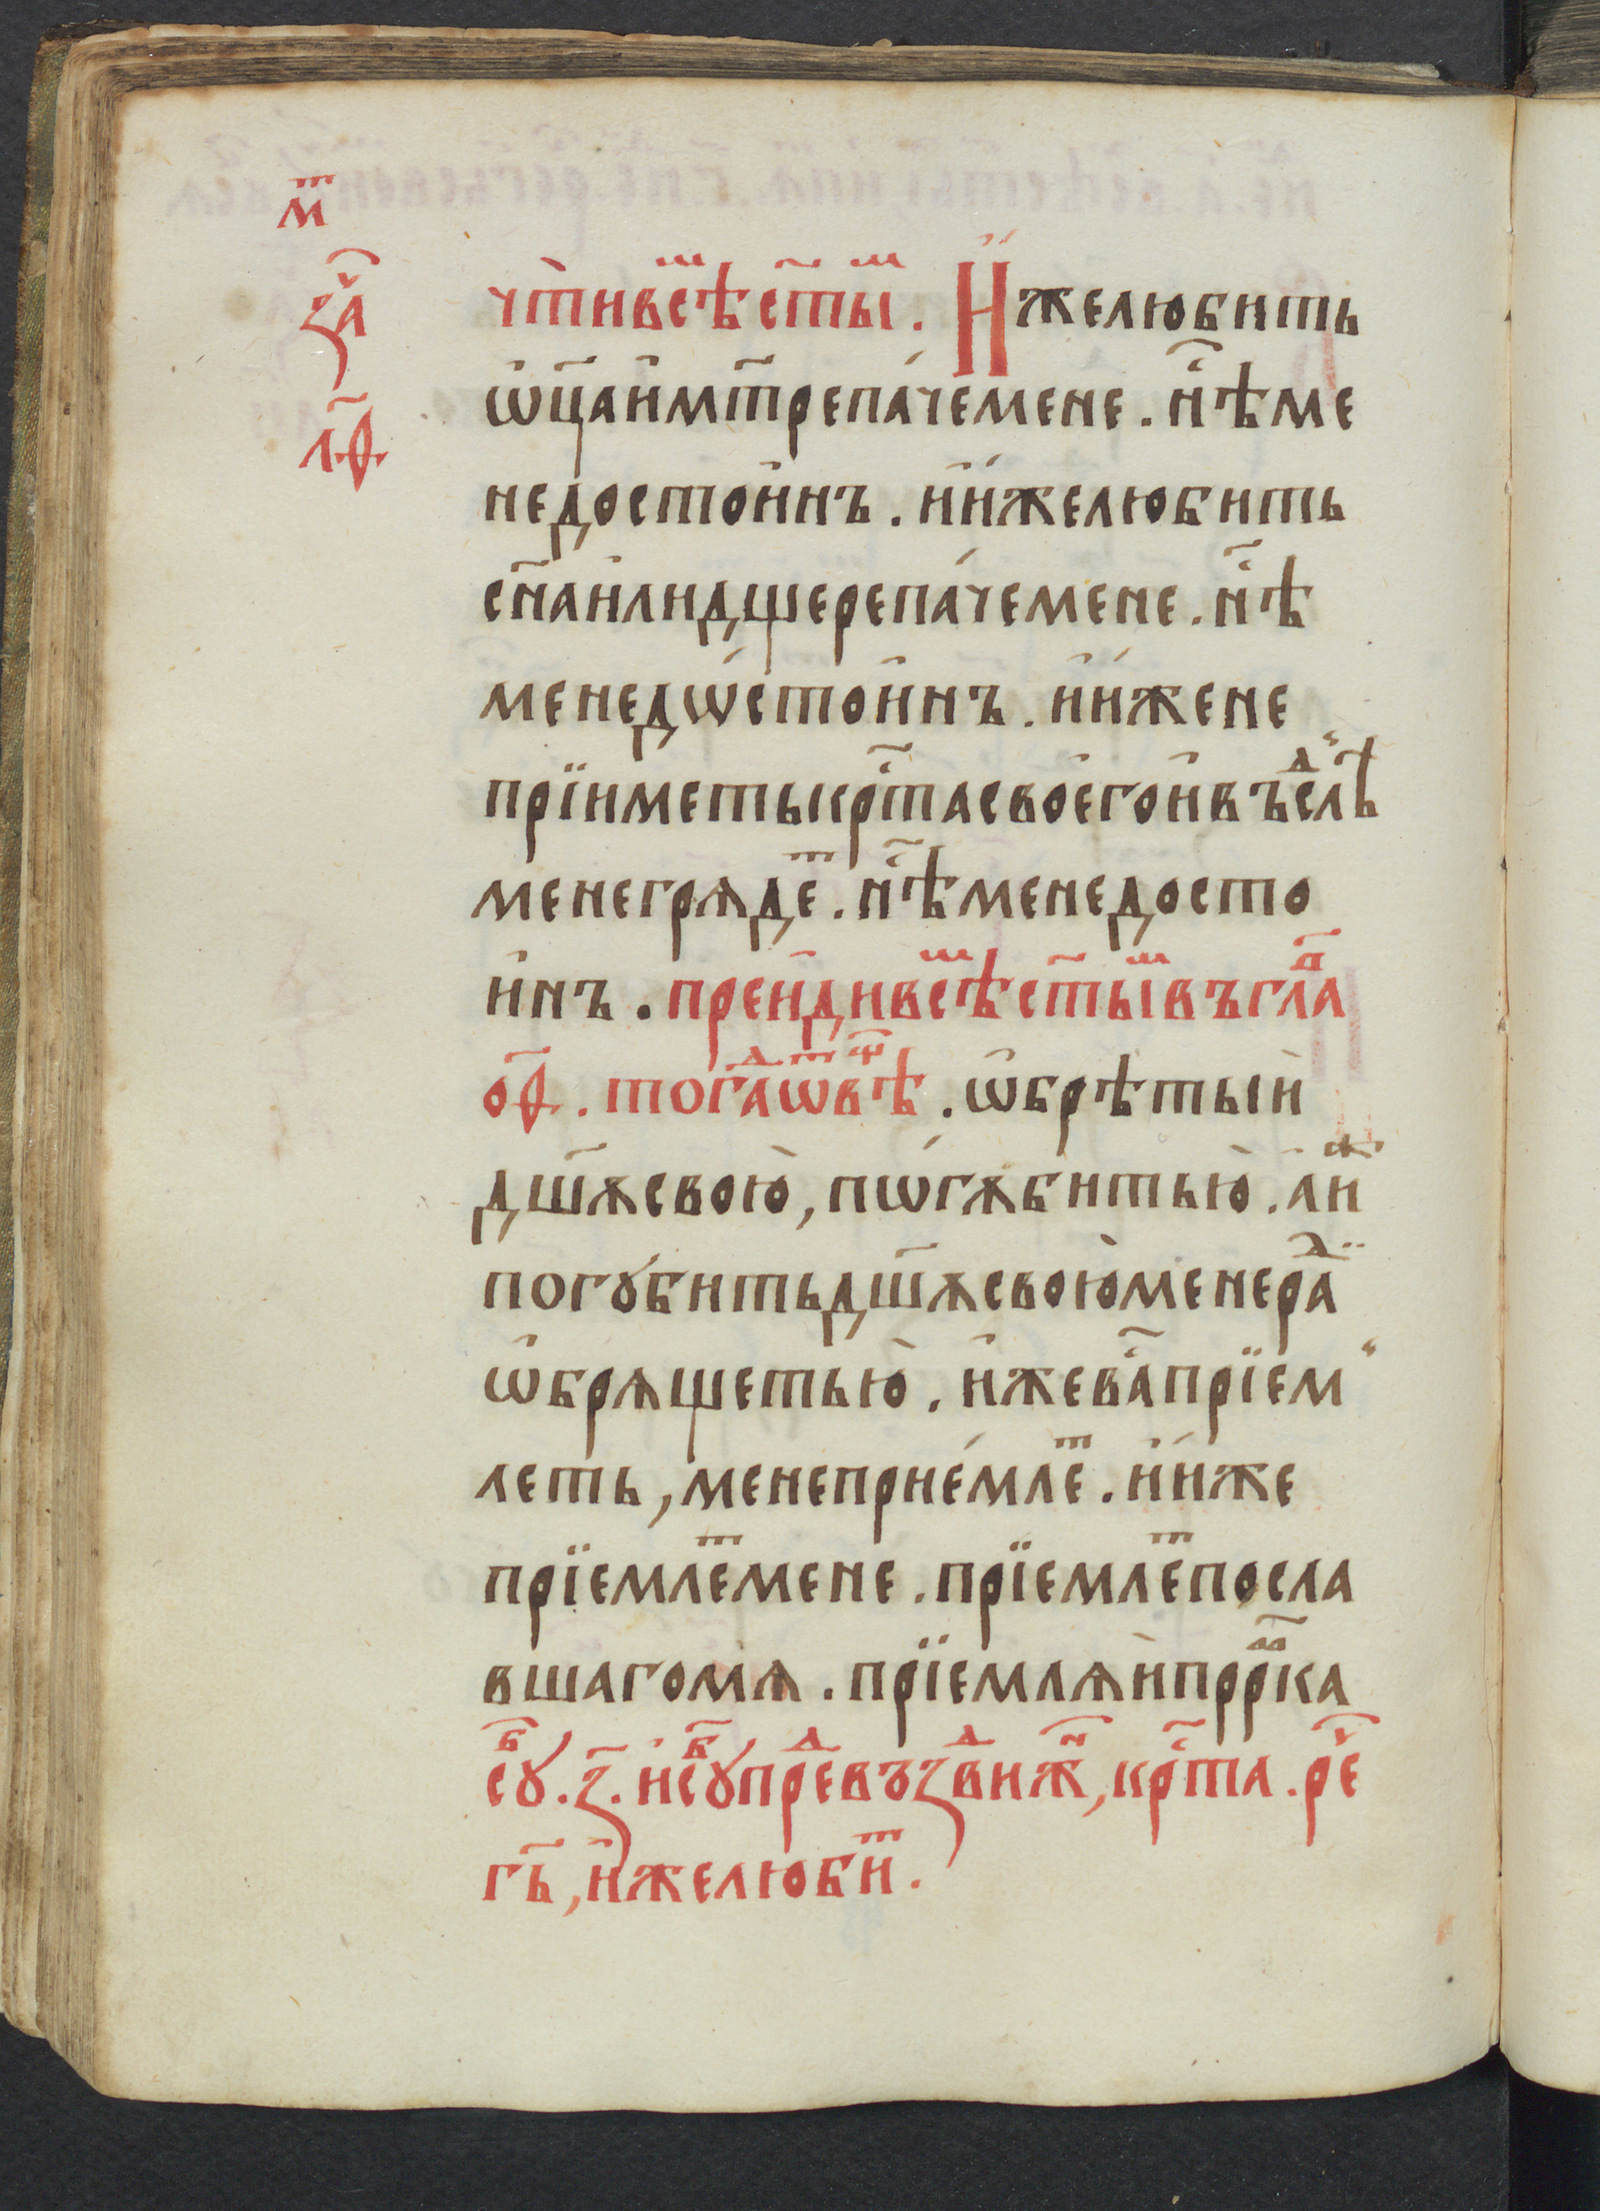 мⷮ
заⷱ
л҃ѳ.
чт̀ивсѣⷯ ст҃ыⷯ. И҆́желюбить
ѡ҆ц҃аи҆мт҃репа́чемене. нⷭ҇ѣме
недостои҆нъ. и҆и҆́желюбить
сн҃аи҆лидщерепа́чемене. нⷭ҇ѣ
менедѡ́стои҆нъ. и҆и҆́жене
прїиметькрⷭ҇тасвоегои҆въслѣⷣ
менегрѧдеⷮ. нⷭ҇ѣменедосто
и҆нъ. преи҆дивсѣⷯ ст҃ыⷯвъглаⷡ
о҃ѳ. тогаⷣѿвѣⷮ. ѡ҆брѣтыи҆
дш҃ѫсвою̀, пѡ́гѫбитью̀. а҆иⷤ
погꙋ́битьдш҃ѫсвою̀менераⷣ
ѡ҆брѧщетью̀. и҆жеваⷭ҇прїем
леть, менеприе́млеⷮ. и҆и҆́же
прїемлеⷮмене. прїемлеⷮпосла
вшагомѧ. прїемлѧи҆прⷪ҇рка
сꙋⷠ. з҃. и҆сꙋⷠпреⷣвъзⷣвижⷩ, крⷭ҇та. реⷱ
гь҃, и҆желюбиⷮ.